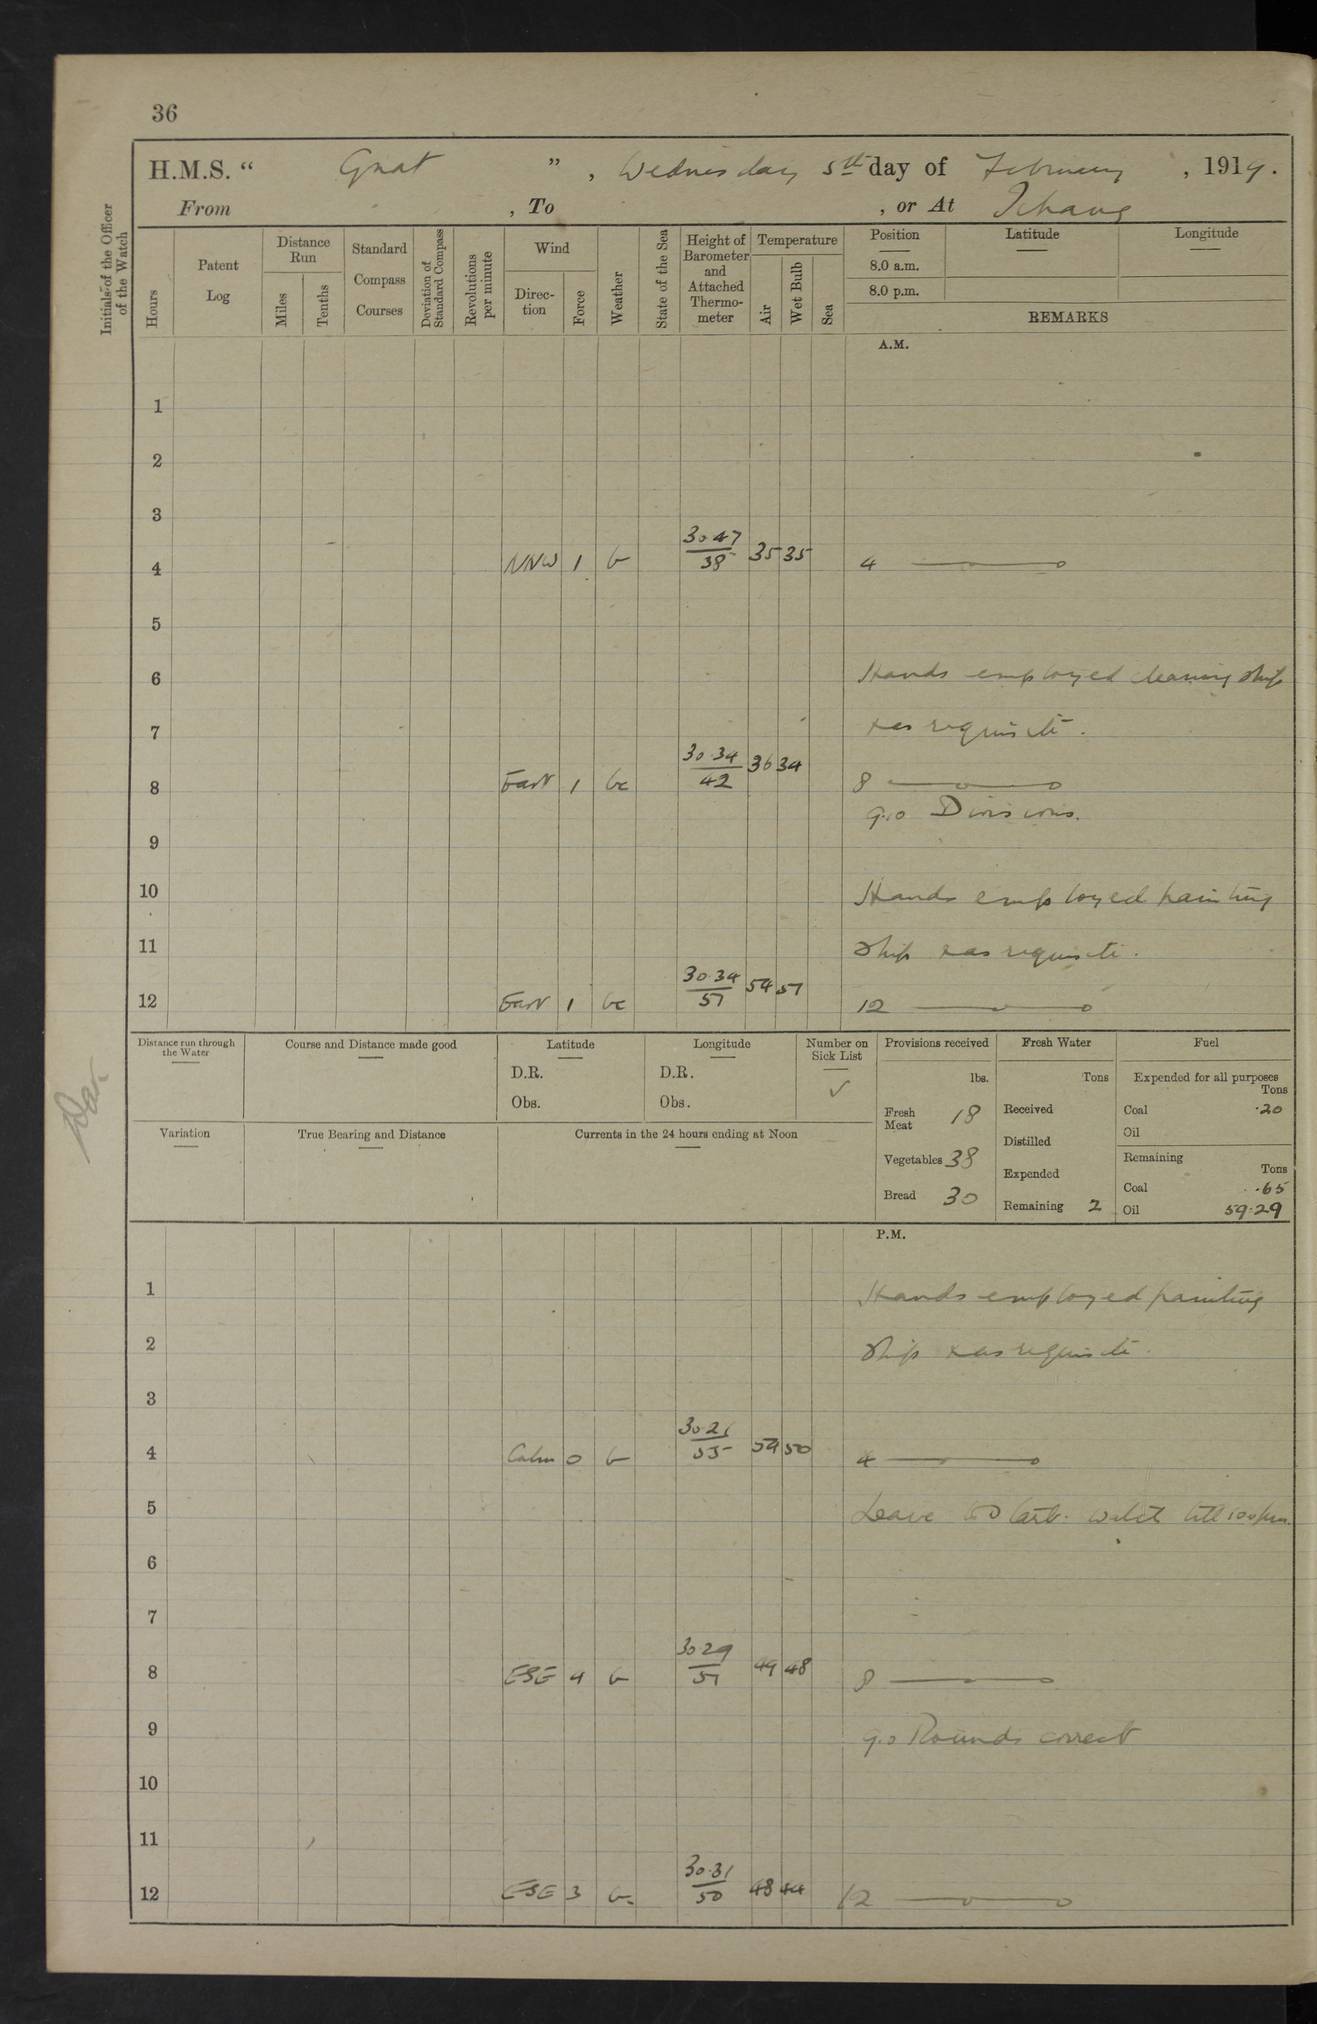 36
H.M.S. “ Gnat ” , Wednesday 5th day of February , 1919.
From , To , or At Ichang
Initials of the Officer of the Watch
Hours
Patent Log
Distance Run
Miles
Tenths
Standard Compass Courses
Deviation of Standard Compass
Revolutions per minute
Wind
Direction
Force
Weather
State of the Sea
Height of Barometer and Attached Thermometer
Temperature
Air
Wet Bulb
Sea
Position Latitude Longitude
8.0 a.m.
8.0 p.m.
REMARKS
A.M.
1
2
3
4 NNW 1 b 30.47 38 35 35 4
5
6 Hands employed cleaning ship
7 & as requisite.
8 East 1 bc 30.34 42 36 34 8
9.10 Divisions.
9
10 Hands employed painting
11 ship & as requisite.
12 East 1 bc 30.34 51 54 51 12
Distance run through the Water
Course and Distance made good
Latitude
D.R.
Obs.
Longitude
D.R.
Obs.
Number on Sick List
✓
Provisions received
lbs.
Fresh Meat 18
Vegetables 38
Bread 30
Fresh Water
Tons
Received
Distilled
Expended
Remaining 2
Fuel
Expended for all purposes
Tons
Coal .20
Oil
Remaining
Tons
Coal .65
Oil 59.29
Variation
True Bearing and Distance
Currents in the 24 hours ending at Noon
P.M.
1 Hands employed painting
2 ship & as requisite.
3
4 Calm 0 b 30.26 55 54 50 4
5 Leave to watch till 10.0 p.m.
6
7
8 ESE 4 b 30.29 51 49 48 8
9 9.0 Rounds correct
10
11
12 ESE 3 b. 30.31 50 48 44 12